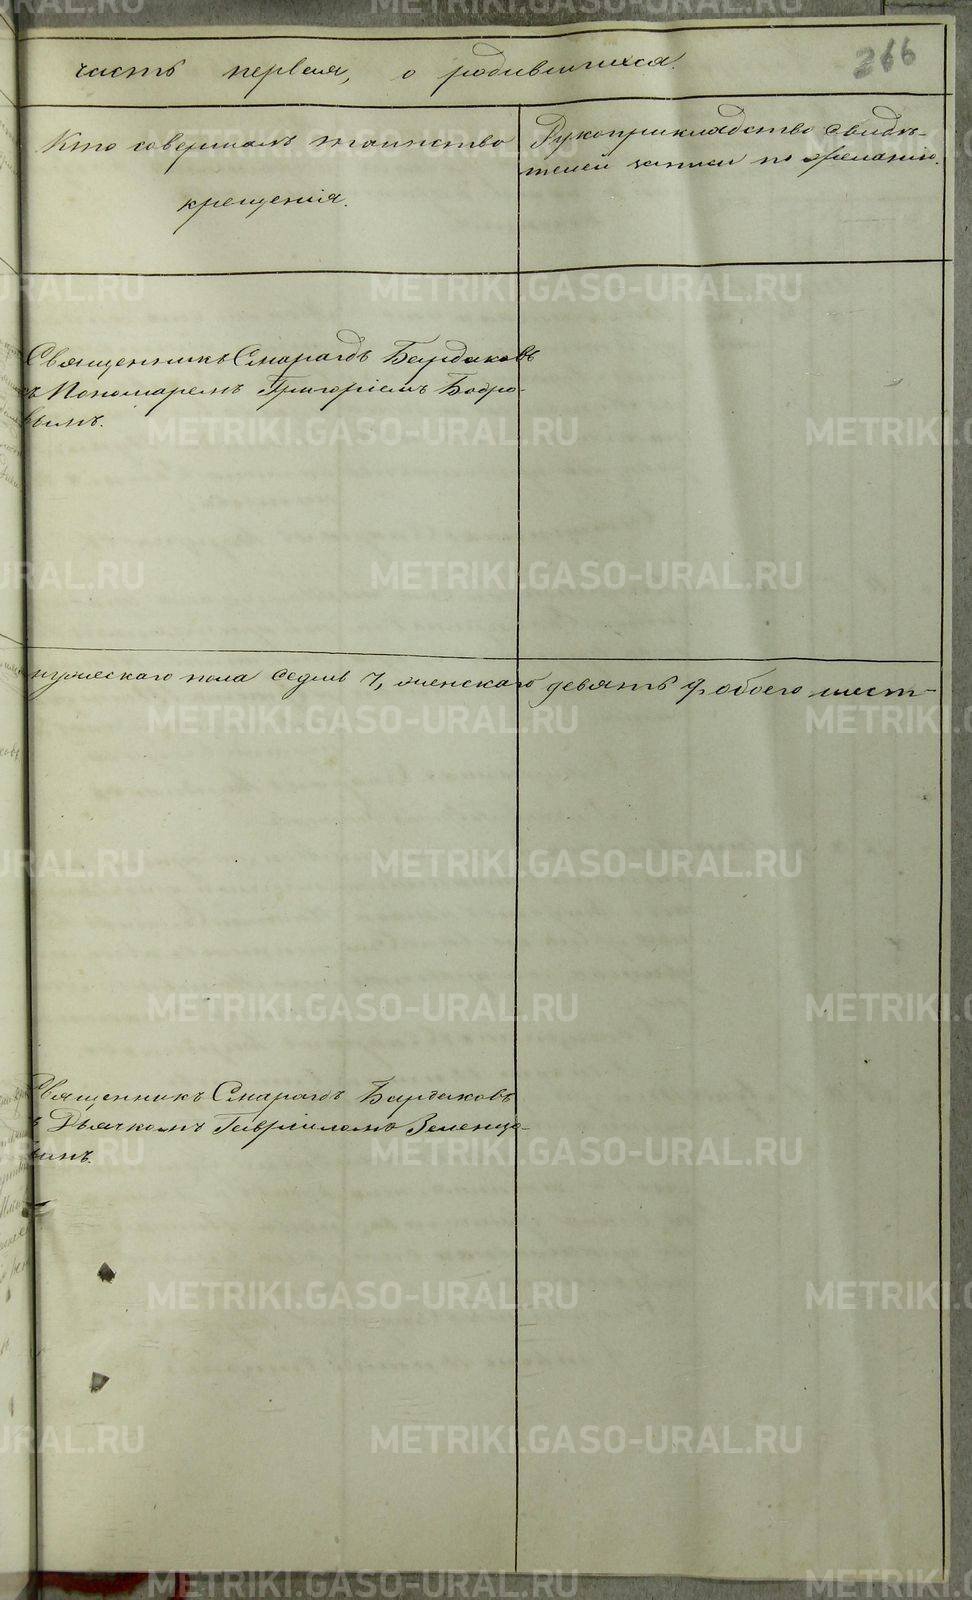 266
часть первая, о родившихся.
Кто совершалъ таинство
крещенія.
Рукоприкладство свидѣ-
телей записи по желанію.
Священникъ Смарагдъ Бардаковъ
съ Пономаремъ Григоріемъ Бобро-
вымъ.
мужескаго пола седмь 7, женскаго девять 9, обоего шест-
Священникъ Смарагдъ Бардаковъ
съ Дьячкомъ Гавріиломъ Зеленцо-
вымъ.
METRIKI.GASO-URAL.RU